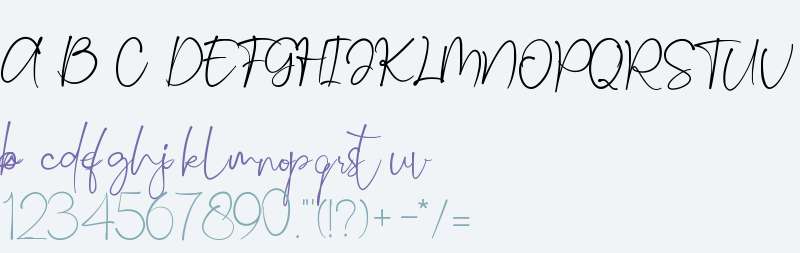 A B C DEFGHIJKLMNOPQRSTUV
b cdefghijklmnopqrst uv
1234567890."'(!?)+-*/=